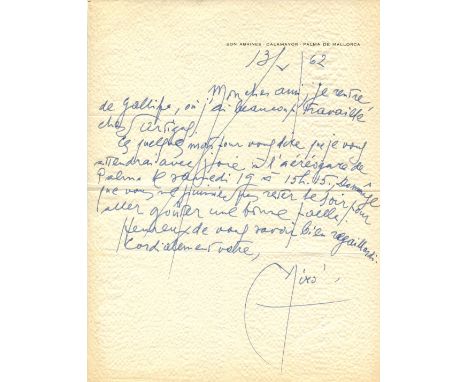 SON ABRINES - CALAMAYOR - PALMA DE MALLORCA
13/V/62
Mon cher ami, je rentre
de Gallifa, où j'ai beaucoup travaillé
chez Artigas.
Ces quelques mots pour vous dire que je vous
attendrai avec joie à l'aérogare de
Palma le samedi 19 à 15h.15, dommage
que vous ne puissiez pas rester le soir pour
aller goûter une bonne paella.
Heureux de vous savoir bien regaillardi.
Cordialement votre,
Miró.